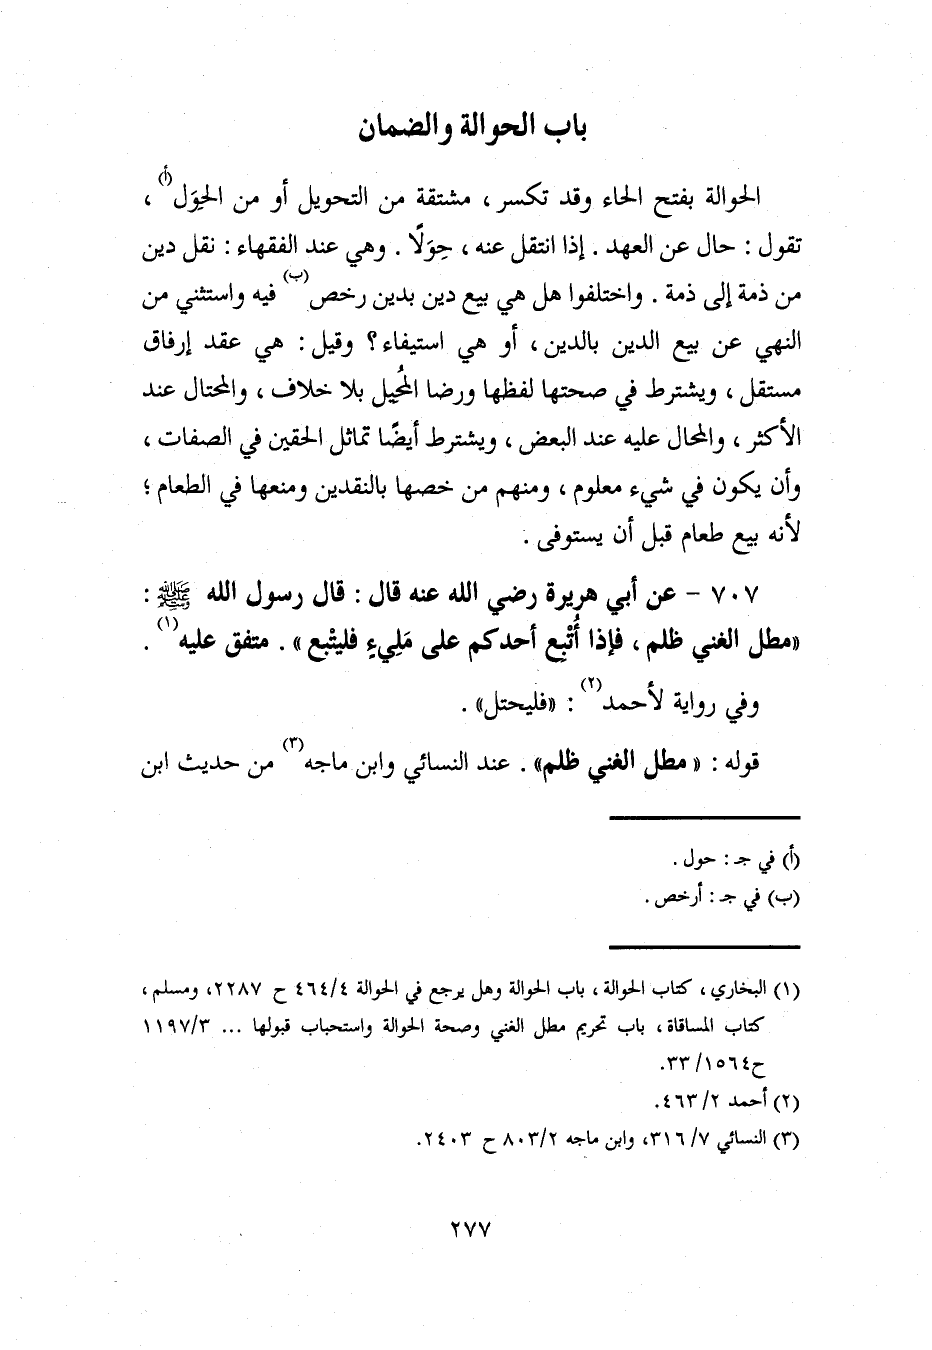 باب الحوالة والضمان
الحوالة بفتح الحاء وقد تكسر ، مشتقة من التحويل أو من الحِوَل(أ) ،
تقول : حال عن العهد . إذا انتقل عنه ، حِوَلًا . وهي عند الفقهاء : نقل دين
من ذمة إلى ذمة . واختلفوا هل هي بيع دين بدين رخص(ب) فيه واستثني من
النهي عن بيع الدين بالدين ، أو هي استيفاء ؟ وقيل : هي عقد إرفاق
مستقل ، ويشترط في صحتها لفظها ورضا المُحيل بلا خلاف ، والمحتال عند
الأكثر ، والمحال عليه عند البعض ، ويشترط أيضًا تماثل الحقين في الصفات ،
وأن يكون في شيء معلوم ، ومنهم من خصها بالنقدين ومنعها في الطعام ؛
لأنه بيع طعام قبل أن يستوفى .
٧٠٧ - عن أبي هريرة رضي الله عنه قال : قال رسول الله ﷺ :
«مطل الغني ظلم ، فإذا أُتْبِع أحدكم على مَلِيءٍ فليتْبع » . متفق عليه(١) .
وفي رواية لأحمد(٢) : «فليحتل» .
قوله : « مطل الغني ظلم» . عند النسائي وابن ماجه(٣) من حديث ابن
(أ) في جـ : حول .
(ب) في جـ : أرخص .
(١) البخاري ، كتاب الحوالة ، باب الحوالة وهل يرجع في الحوالة ٤/ ٤٦٤ ح ٢٢٨٧، ومسلم ،
كتاب المساقاة ، باب تحريم مطل الغني وصحة الحوالة واستحباب قبولها ... ٣/ ١١٩٧
ح١٥٦٤/ ٣٣.
(٢) أحمد ٢/ ٤٦٣.
(٣) النسائي ٧/ ٣١٦، وابن ماجه ٢/ ٨٠٣ ح ٢٤٠٣.
٢٧٧